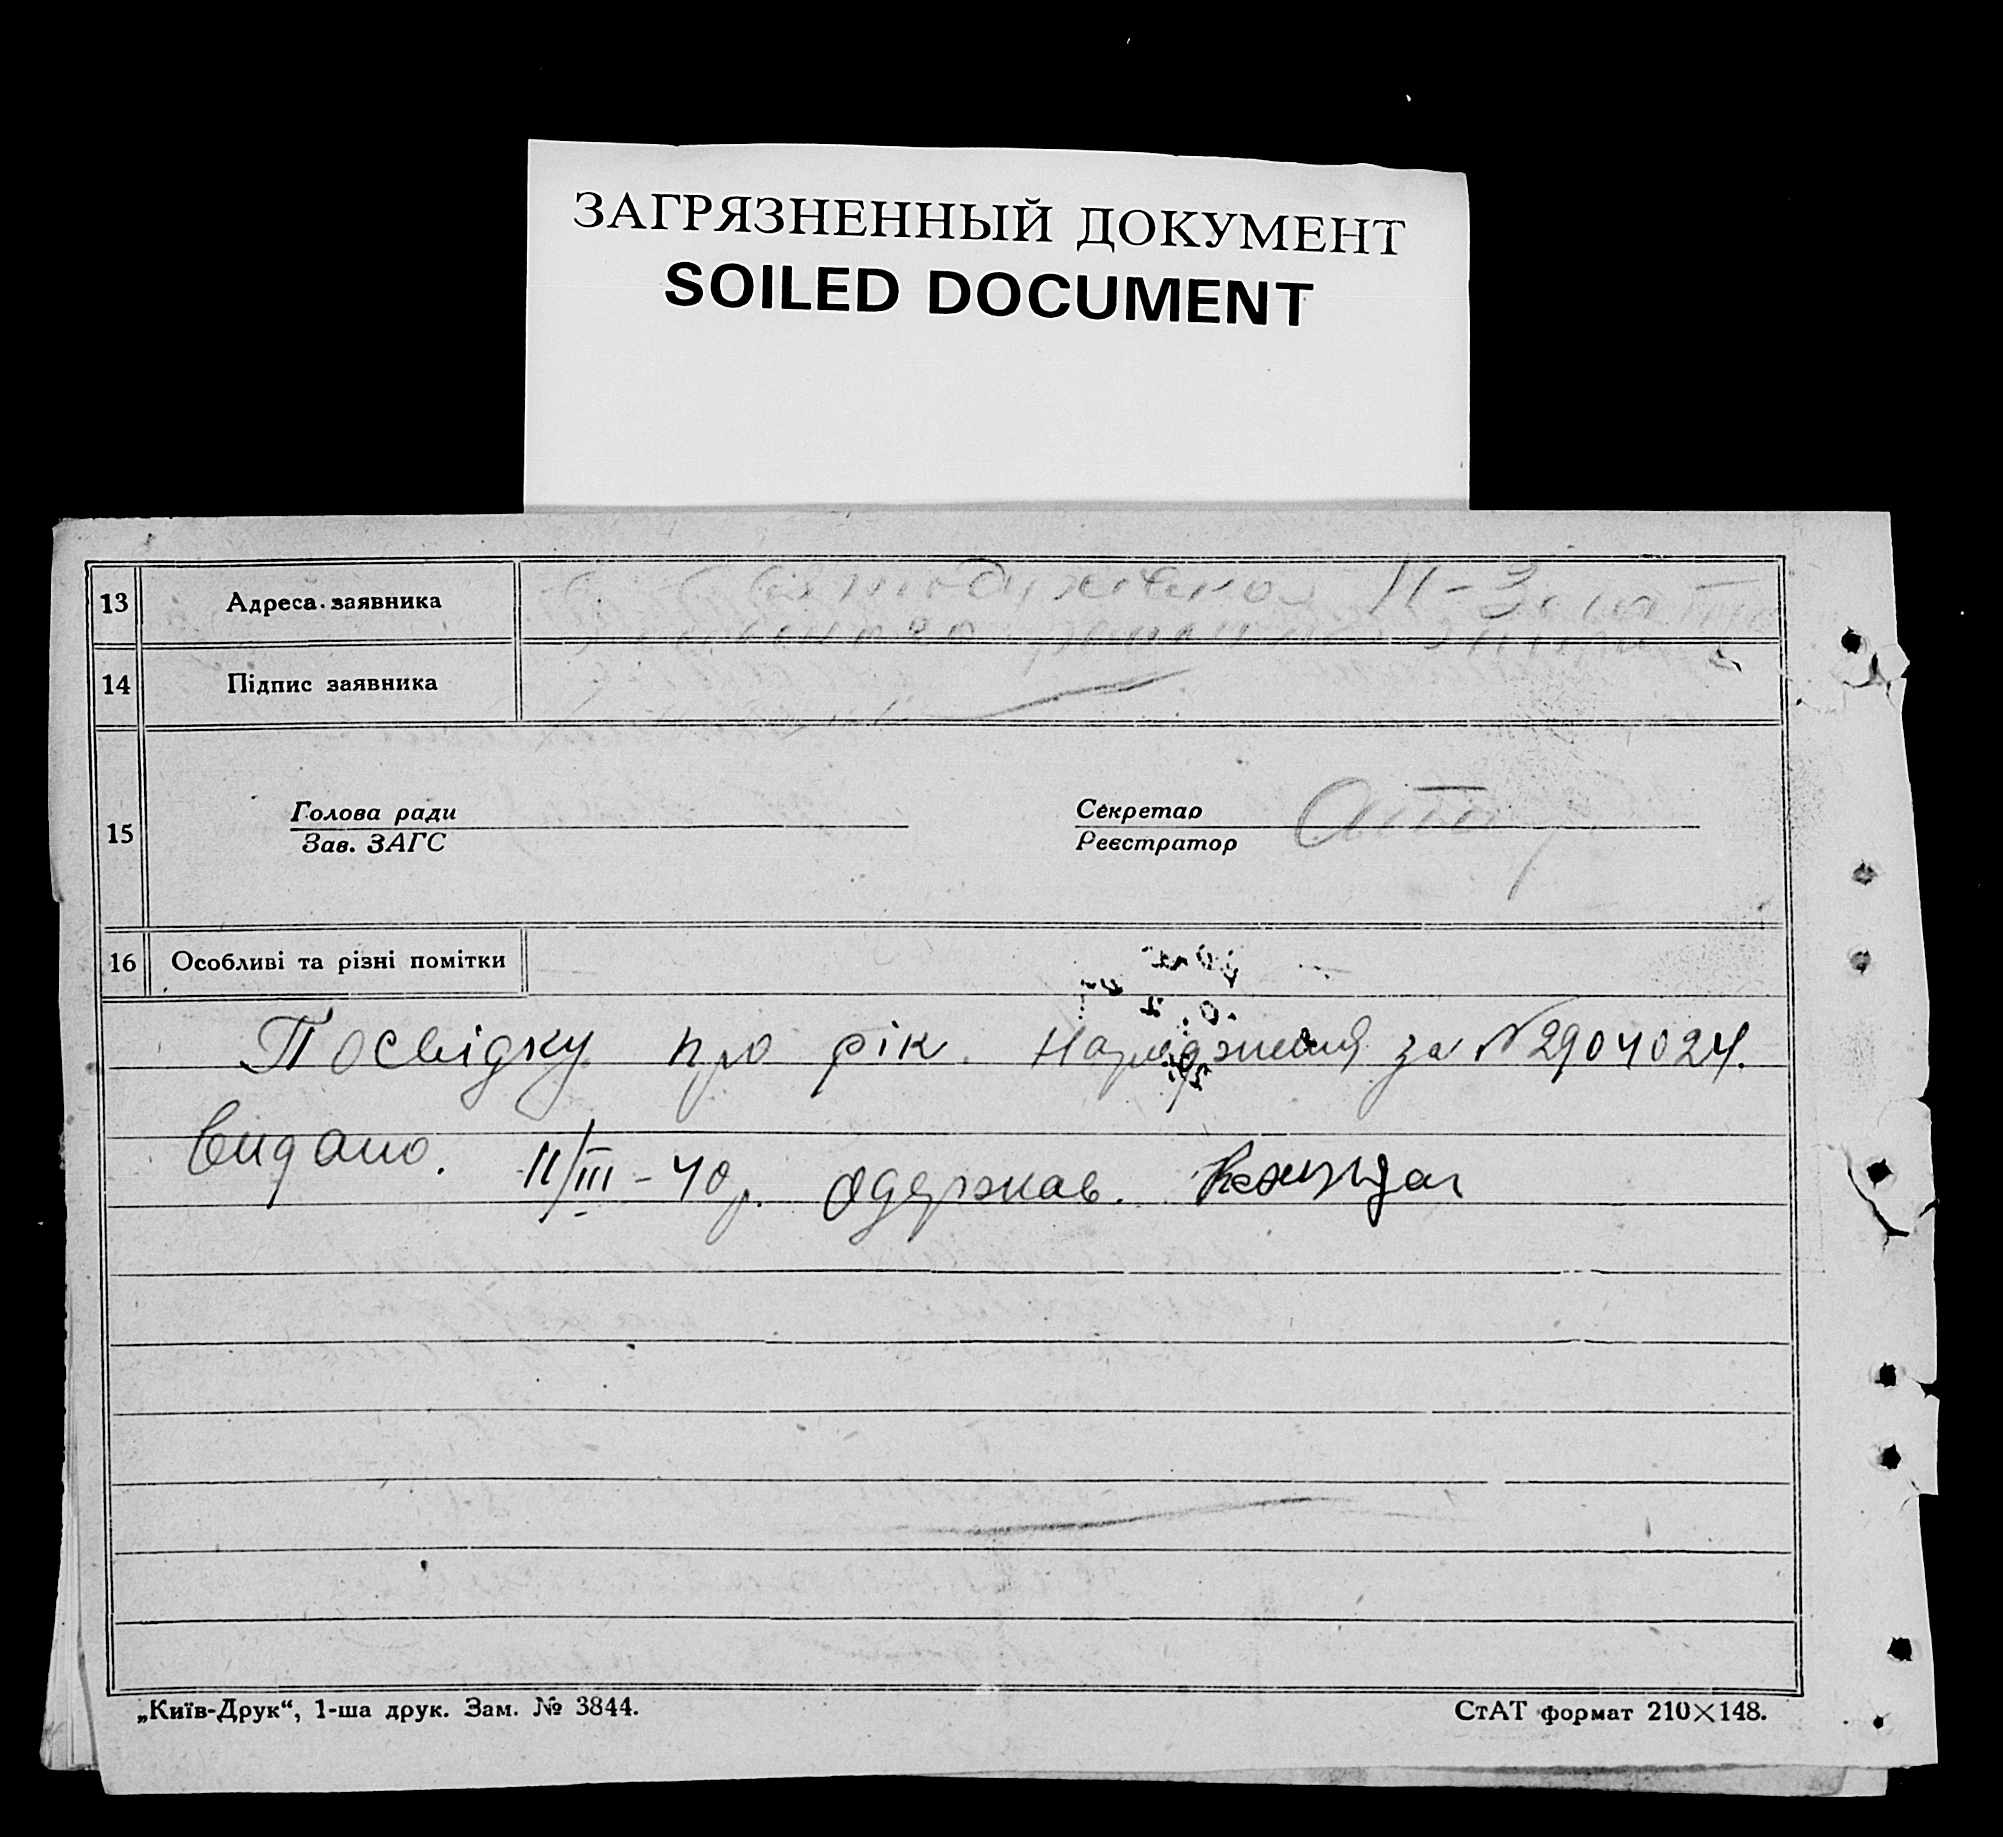 ЗАГРЯЗНЕННЫЙ ДОКУМЕНТ
SOILED DOCUMENT
13 Адреса заявника
14 Підпис заявника
Голова ради Секретар
15
Зав. ЗАГС Реєстратор
16 Особливі та різні помітки
Посвідку про рік. народження за №2904024.
видано. 11/III-40р. одержав.
„Київ-Друк“, 1-ша друк. Зам. № 3844. СтАТ формат 210×148.